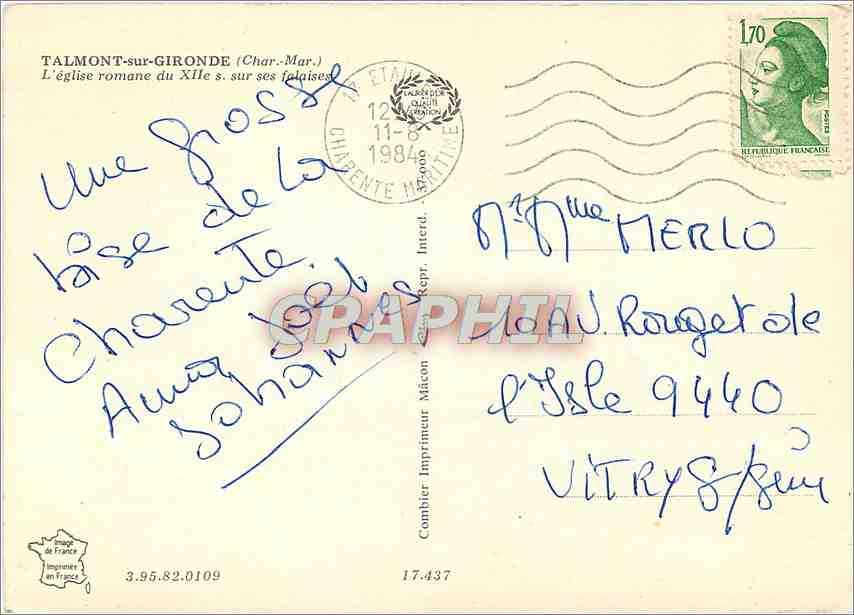 TALMONT-sur-GIRONDE (Char.-Mar.)
L'église romane du XIIe s. sur ses falaises
17 ETAU
12
11-8
1984
CHARENTE MARITIME
LAURIER D'OR
QUALITÉ
CRÉATION
1,70
POSTES
REPUBLIQUE FRANÇAISE
Une grosse
bise de la
Charente.
Joël
Johannes
Mr Mme MERLO
10 AV. Rouget de
l'Isle 9440
VITRY S/Seine
CPAPHIL
Combier Imprimeur Mâcon
Repr. Interd. - 37-000
Image
de France
Imprimée
en France
3.95.82.0109
17.437